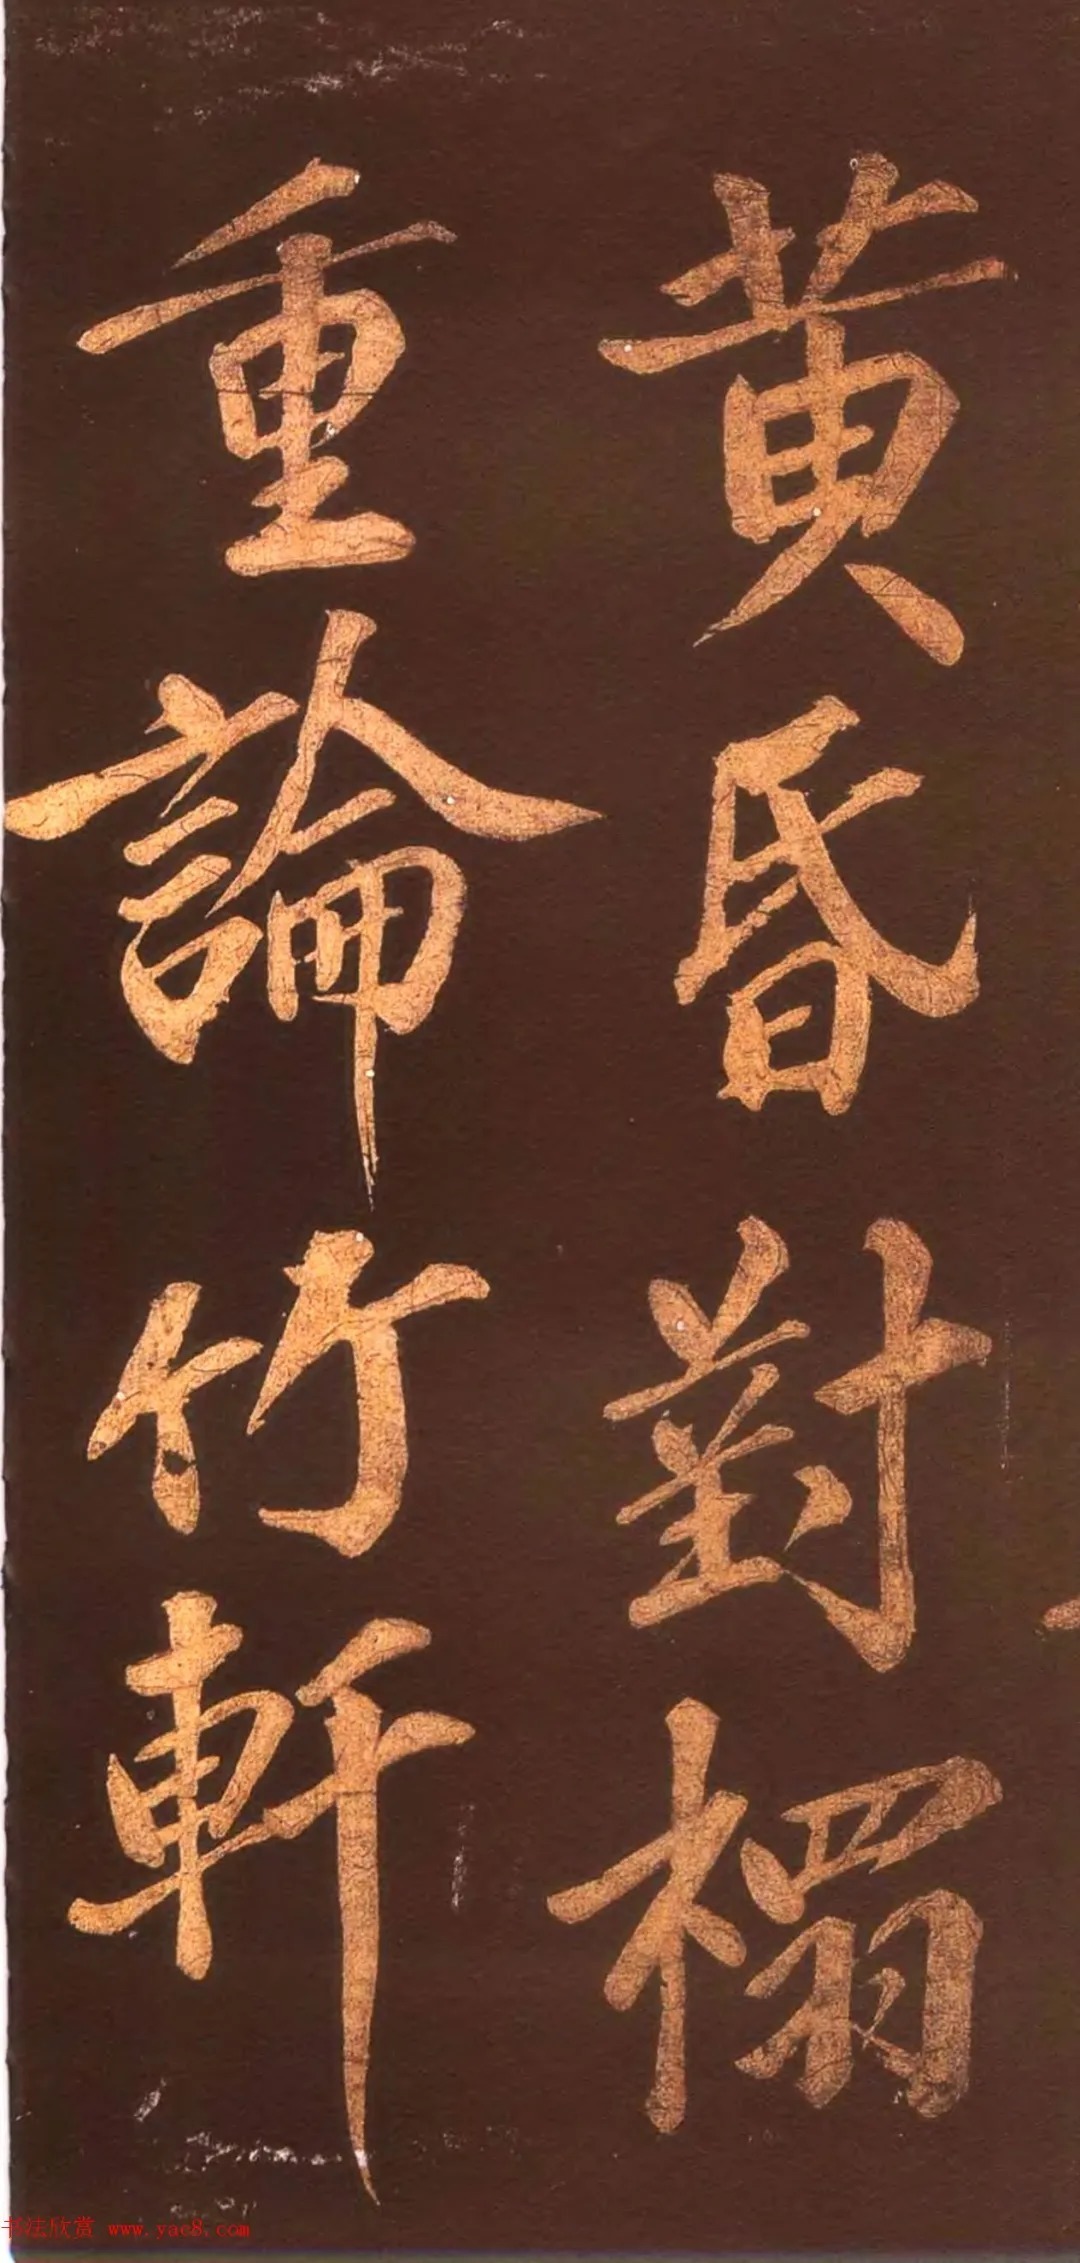 黄昏對榻
重論竹軒
书法欣赏 www.yac8.com